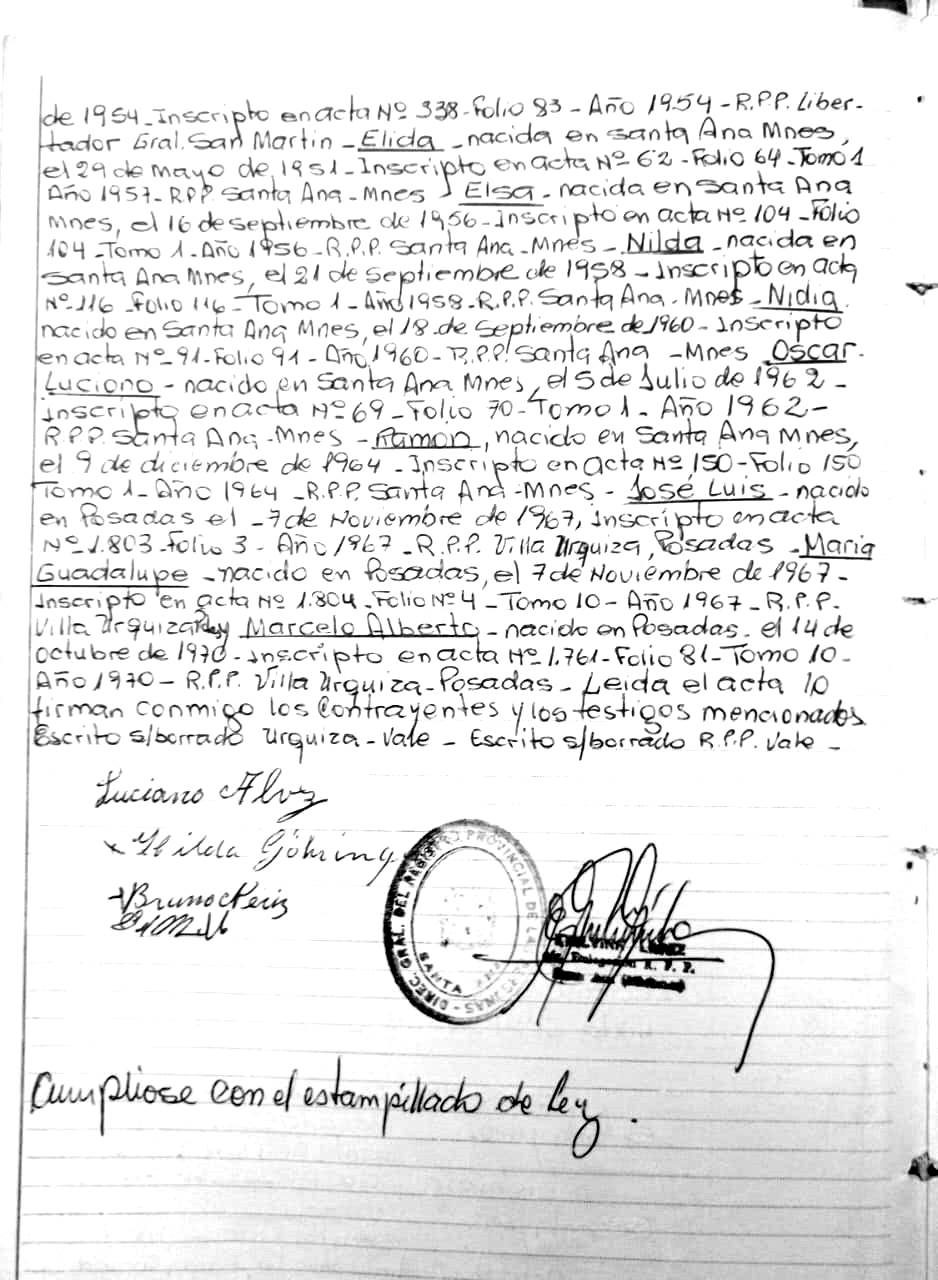 de 1954-Inscripto en acta Nº 338-Folio 83-Año 1954-R.P.P. Liber-
tador Gral. San Martin-Elida-nacida en Santa Ana Mnes,
el 29 de mayo de 1951-Inscripto en acta Nº 62-Folio 64-Tomo 1
Año 1957-RPP. Santa Ana-Mnes Elsa-nacida en Santa Ana
Mnes, el 16 de septiembre de 1956-Inscripto en acta Nº 104-Folio
104-Tomo 1-Año 1956-R.P.P. Santa Ana-Mnes-Nilda-nacida en
Santa Ana Mnes, el 21 de septiembre de 1958-Inscripto en acta
Nº 116-Folio 116-Tomo 1-Año 1958-R.P.P. Santa Ana-Mnes-Nidia
nacido en Santa Ana Mnes, el 18 de septiembre de 1960-Inscripto
en acta Nº 91-Folio 91-Año 1960-R.P.P. Santa Ana-Mnes Oscar
Luciano-nacido en Santa Ana Mnes, el 5 de Julio de 1962-
Inscripto en acta Nº 69-Folio 70-Tomo 1-Año 1962-
R.P.P. Santa Ana-Mnes-Ramon, nacido en Santa Ana Mnes,
el 9 de diciembre de 1964-Inscripto en acta Nº 150-Folio 150
Tomo 1-Año 1964-R.P.P. Santa Ana-Mnes-José Luis-nacido
en Posadas el-7 de Noviembre de 1967, inscripto en acta
Nº 1.803-Folio 3-Año 1967-R.P.P. Villa Urquiza, Posadas-Maria
Guadalupe-nacido en Posadas, el 7 de Noviembre de 1967-
Inscripto en acta Nº 1.804-Folio Nº 4-Tomo 10-Año 1967-R.P.P.
Villa Urquiza y Marcelo Alberto-nacido en Posadas. el 14 de
octubre de 1970-Inscripto en acta Nº 1.761-Folio 81-Tomo 10-
Año 1970-R.P.P. Villa Urquiza-Posadas-Leida el acta lo
firman conmigo los contrayentes y los testigos mencionados
Escrito s/borrado Urquiza-Vale-Escrito s/borrado R.P.P. Vale-
Luciano Alvez
x Hilda Göhring
DIREC. GRAL. DEL REGISTRO PROVINCIAL DE LAS PERSONAS
SANTA ANA
R. P. P.
Cumpliose con el estampillado de ley.